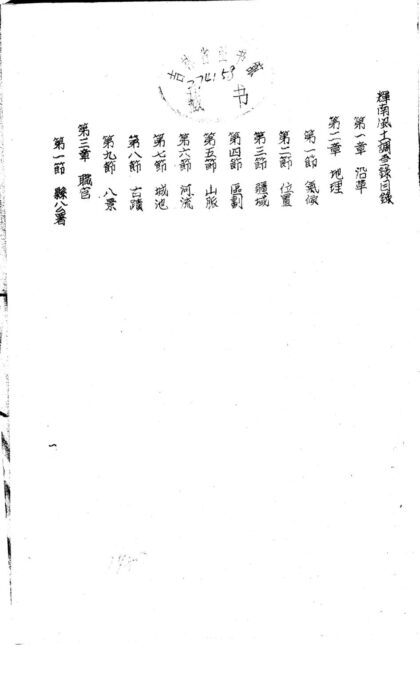 輝南風土調查錄目錄
第一章 沿革
第二章 地理
第一節 氣候
第二節 位置
第三節 疆域
第四節 區劃
第五節 山脈
第六節 河流
第七節 城池
第八節 古蹟
第九節 八景
第三章 職官
第一節 縣公署
书